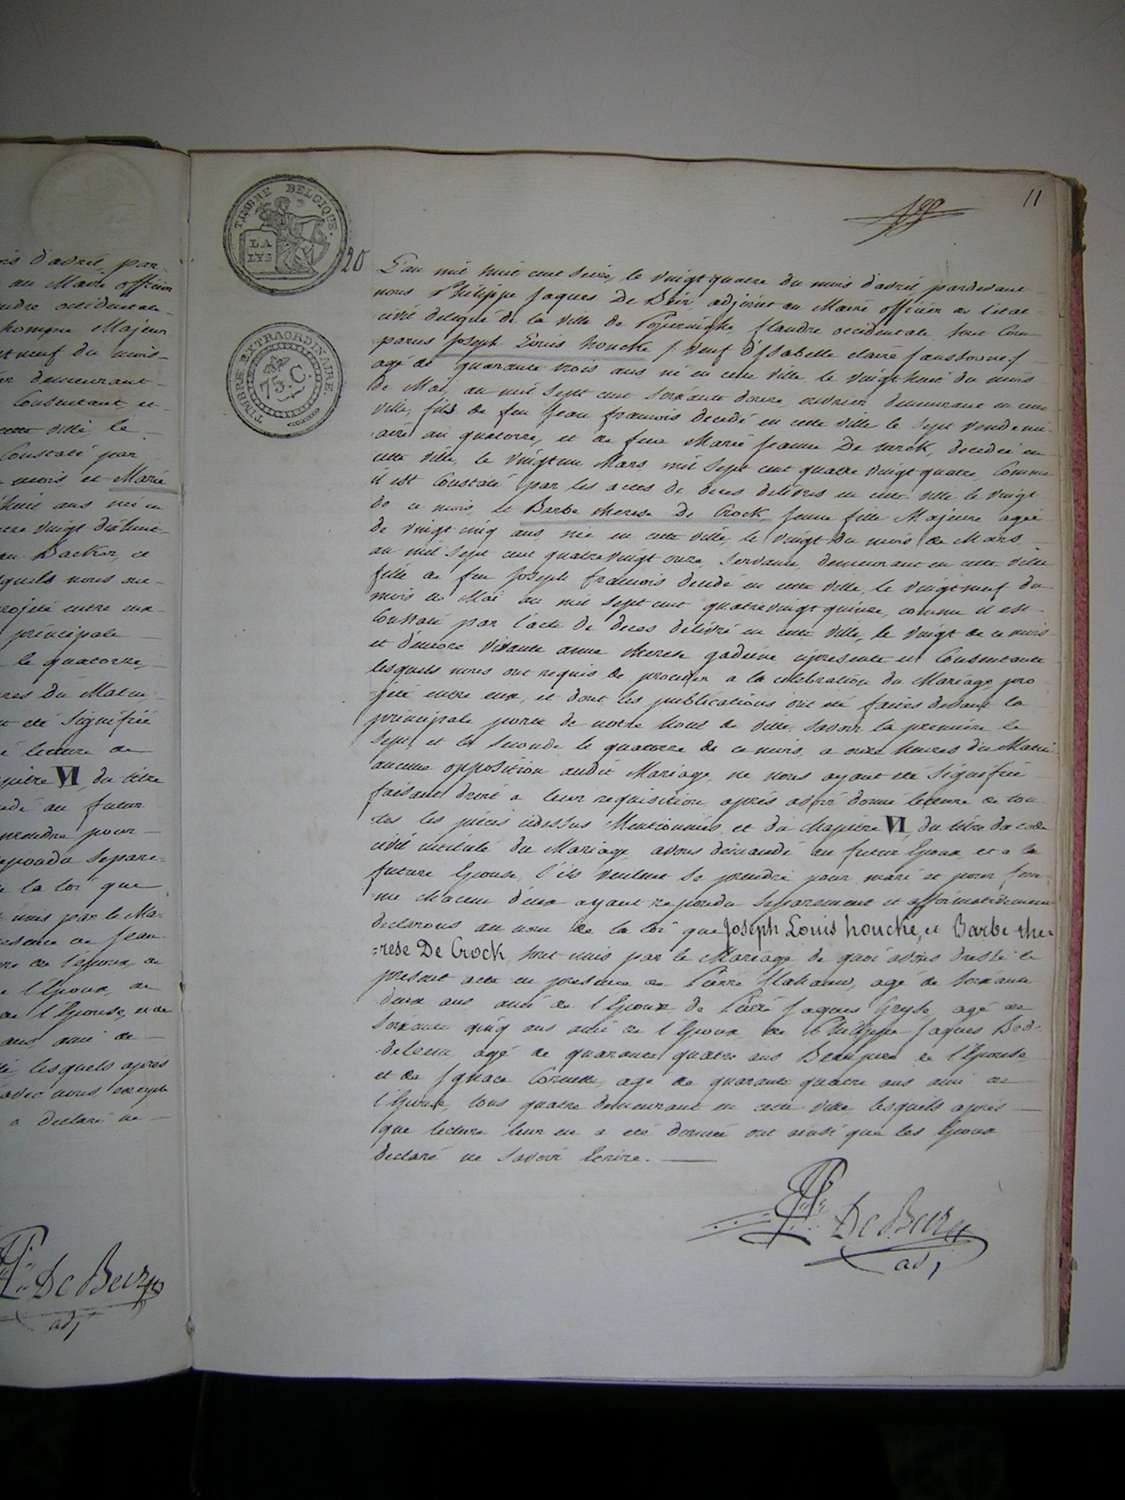 11
TIMBRE BELGIQUE.
LA
LYS
TIMBRE EXTRAORDINAIRE.
75.C.
20
L'an mil huit cent seize, le vingt quatre du mois d'avril pardevant
nous Philippe Jaques De Beir, adjoint au Maire officier de l'état
civil délegué de la ville de flandre occidentale, sont Com
parus Joseph Louis houcke / veuf d'Isabelle claire /
agé de quarante trois ans né en cette ville, le vingt huit du mois
de Mai, an mil sept cent soixante douze, ouvrier demeurant en cette
ville, fils de feu Jean francois decedé en cette ville le sept vendemi
aire an quatorze, et de feue Marie Jeanne De decedée en
cette ville, le vingt un Mars mil sept cent quatre vingt quatre, Comme
il est Constaté par les actes de deces delivrés en cette ville le vingt
de ce mois, et Barbe therese de Crock, Jeune fille Majeure agée
de vingt cinq ans, née en cette ville, le vingt du mois de Mars,
an mil sept cent quatre vingt onze, servante, demeurant en cette ville
fille de feu Joseph francois decedé en cette ville, le vingt neuf du
mois de Mai an mil sept cent quatrevingt quinze, comme il est
Constaté par l'acte de deces delivré en cette ville, le vingt de ce mois
et d'encore vivante anne therese ci presente et Consentante
lesquels nous ont requis de proceder a la celebration du Mariage pro
jeté entre eux, et dont les publications ont été faites devant la
principale porte de notre hotel de ville, savoir la premiere le
sept et la seconde le quatorze de ce mois, a onze heures du Matin
aucune opposition audit Mariage, ne nous ayant été signifiée
faisant droit a leur requisition, aprés avoir donné lecture de tou
tes les piéces cidessus Mentionnées, et du chapitre VI, du titre du code
civil intitulé du Mariage, avons demandé au futur Epoux et a la
future Epouse, s'ils veulent se prendre pour mari et pour fem
me chacun d'eux ayant repondu separement et affirmativement
declarons au nom de la loi que Joseph Louis houcke, et Barbe the
=rese De Crock, sont unis par le Mariage de quoi avons dressé le
present acte en presence de Pierre agé de soixante
deux ans ami de l'Epoux de Pierre Jaques Gryse agé de
soixante cinq ans ami de l'Epoux, de Philippe Jaques
agé de quarante quatre ans Beaupere de l'Epouse
et de Ignace agé de quarante quatre ans ami de
l'Epoux, tous quatre demeurant en cette ville lesquels aprés
que lecture leur en a été donnée ont ainsi que les Epoux
declaré ne savoir Ecrire.
De Beir
adj
is d'avril par
au Maire officier
occidentale
Majeur
neuf du mois
demeurant
Consentant et
cette ville le
Constaté par
mois et Marie
huit ans née en
vingt
Backer, ce
quels nous
rojeté entre eux
principale
le quatorze
res du Matin
été signifiée
lecture de
pitre VI, du titre
au futur
prendre pour
repondu separe
la loi que
unis par le Ma
esence de Jean
de l'epoux de
l'Epoux, de
de l'Epouse
ans, ami de
lesquels aprés
avec nous
a declaré ne
De Beir
adj